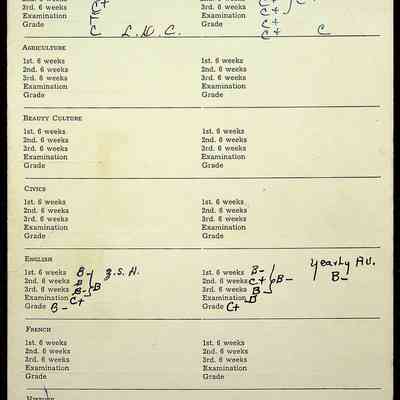 3rd. 6 weeks C+ 3rd. 6 weeks C+ C
Examination Examination C+
Grade C L.H.C. Grade C+ C
AGRICULTURE
1st. 6 weeks 1st. 6 weeks
2nd. 6 weeks 2nd. 6 weeks
3rd. 6 weeks 3rd. 6 weeks
Examination Examination
Grade Grade
BEAUTY CULTURE
1st. 6 weeks 1st. 6 weeks
2nd. 6 weeks 2nd. 6 weeks
3rd. 6 weeks 3rd. 6 weeks
Examination Examination
Grade Grade
CIVICS
1st. 6 weeks 1st. 6 weeks
2nd. 6 weeks 2nd. 6 weeks
3rd. 6 weeks 3rd. 6 weeks
Examination Examination
Grade Grade
ENGLISH
1st. 6 weeks B- Z.S.H. 1st. 6 weeks B- Yearly AV.
2nd. 6 weeks B 2nd. 6 weeks C+ B- B-
3rd. 6 weeks B- B 3rd. 6 weeks B-
Examination C+ Examination D
Grade B- Grade C+
FRENCH
1st. 6 weeks 1st. 6 weeks
2nd. 6 weeks 2nd. 6 weeks
3rd. 6 weeks 3rd. 6 weeks
Examination Examination
Grade Grade
HISTORY